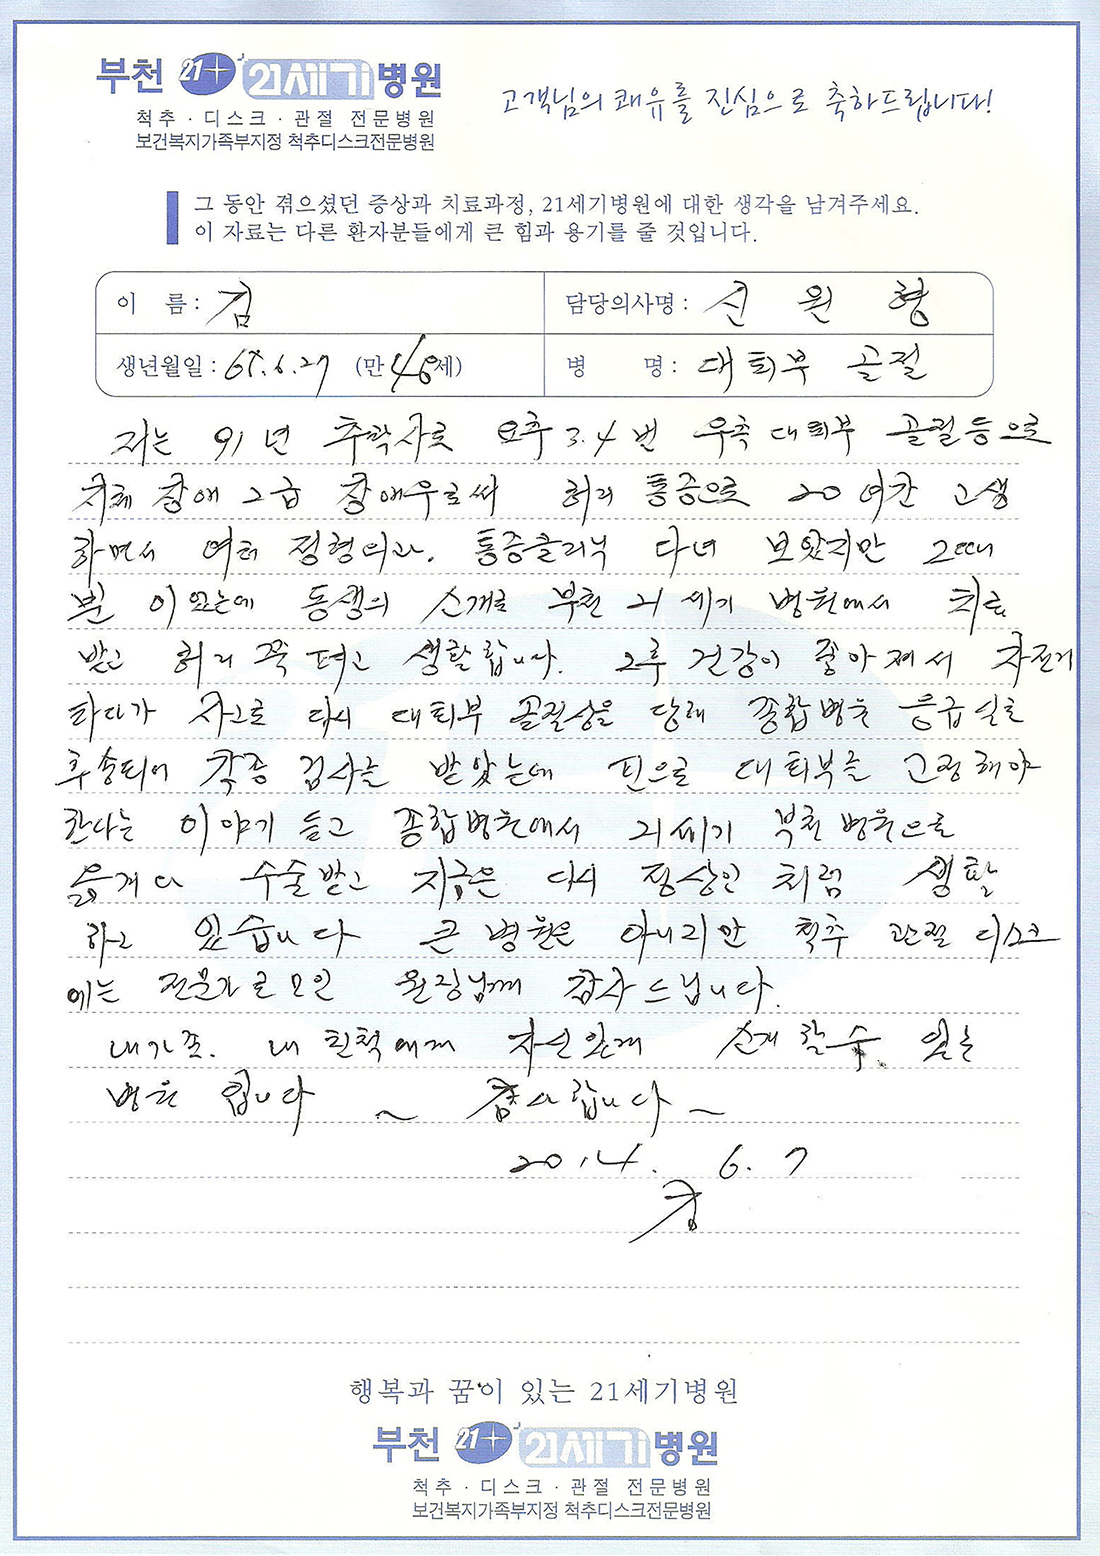 부천 21+ 21세기병원
척추 · 디스크 · 관절 전문병원
보건복지가족부지정 척추디스크전문병원
고객님의 쾌유를 진심으로 축하드립니다!
그 동안 겪으셨던 증상과 치료과정, 21세기병원에 대한 생각을 남겨주세요.
이 자료는 다른 환자분들에게 큰 힘과 용기를 줄 것입니다.
이 름 : 김
담당의사명 : 신 원 형
생년월일 : 6.27 (만 48세)
병 명 : 대퇴부 골절
저는 91년 추락사로 요추 3.4번 우측 대퇴부 골절등으로
지체 장애 2급 장애우로써 허리 통증으로 20여간 고생
하면서 여러 정형외과. 통증클리닉 다녀 보았지만 그때
뿐 이였는데 동생의 소개로 부천 21세기 병원에서 치료
받고 허리 쭉 펴고 생활합니다. 그후 건강이 좋아져서 자전거
타다가 사고로 다시 대퇴부 골절상을 당해 종합병원 응급실로
후송되어 각종 검사를 받았는데 핀으로 대퇴부를 고정해야
한다는 이야기 듣고 종합병원에서 21세기 부천병원으로
옮겨다 수술받고 지금은 다시 정상인 처럼 생활
하고 있습니다 큰 병원은 아니지만 척추 관절 디스크
에는 전문가로 모인 원장님께 감사드닙니다.
내가족. 내 친척에게 자신있게 소개할수 있는
병원 입니다 ~ 감사합니다 ~
2014. 6. 7
김
행복과 꿈이 있는 21세기병원
부천 21+ 21세기병원
척추 · 디스크 · 관절 전문병원
보건복지가족부지정 척추디스크전문병원